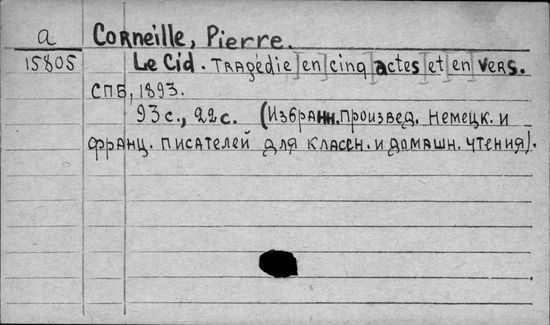 a Corneille, Pierre.
15805 Le Cid. Tragédie]en]cinq]actes]et]en]vers.
СПБ, 1893.
93 с., 22 с. (Избранн. произвед. немецк. и
франц. писателей для классн. и домашн. чтения).